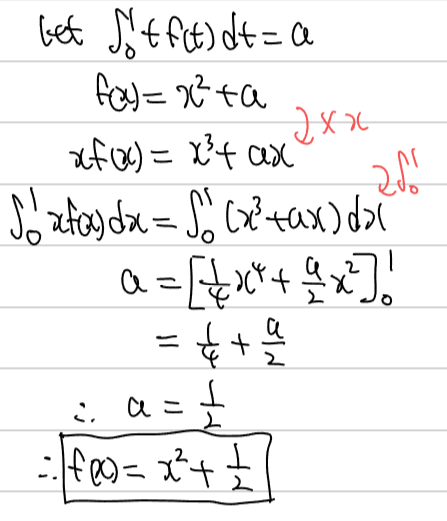 let ∫₀¹ t f(t) dt = a
f(x) = x² + a
xf(x) = x³ + ax ⤵ × x
∫₀¹ xf(x) dx = ∫₀¹ (x³ + ax) dx ⤵ ∫₀¹
a = [1/4 x⁴ + a/2 x²]₀¹
= 1/4 + a/2
∴ a = 1/2
∴ f(x) = x² + 1/2